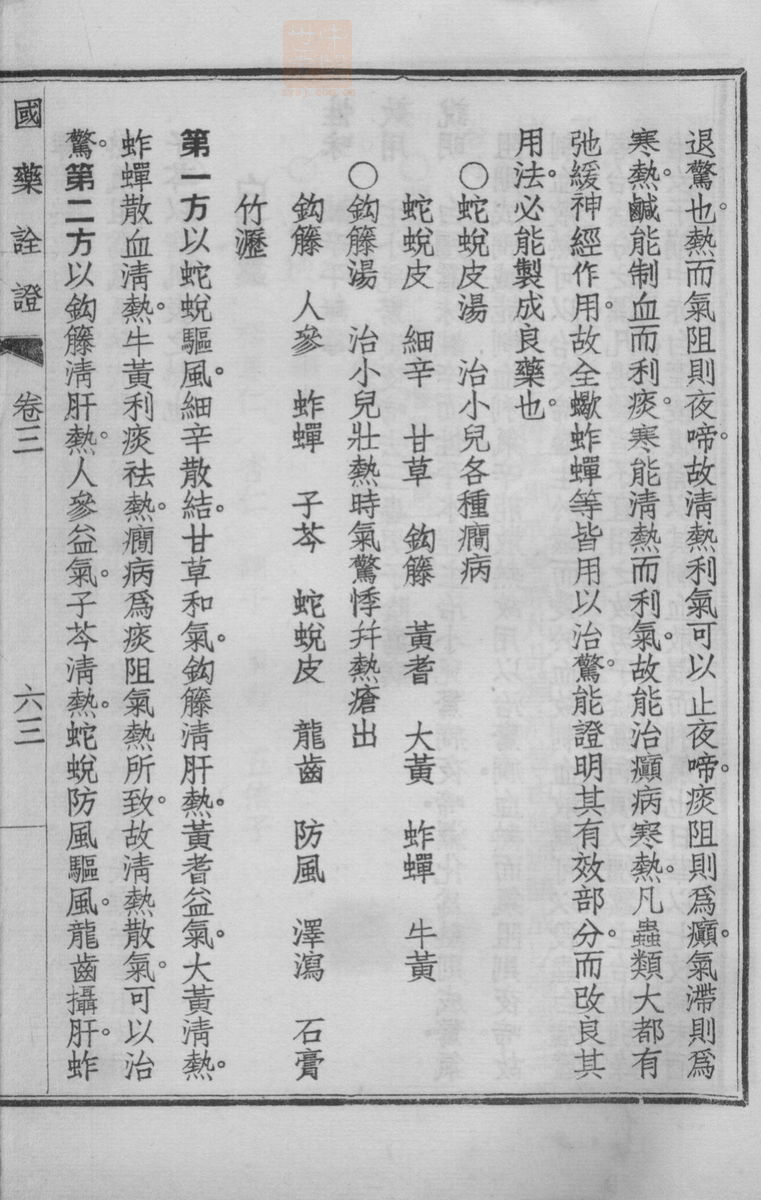 退驚也。熱而氣阻則夜啼。故淸熱利氣可以止夜啼。痰阻則爲癲。氣滯則爲
寒熱。鹹能制血而利痰。寒能淸熱而利氣。故能治癲病寒熱。凡蟲類大都有
弛緩神經作用。故全蠍蚱蟬等皆用以治驚。能證明其有效部分。而改良其
用法。必能製成良藥也。
○蛇蛻皮湯　治小兒各種癇病
蛇蛻皮　細辛　甘草　鈎籐　黃耆　大黃　蚱蟬　牛黃
○鈎籐湯　治小兒壯熱時氣驚悸幷熱瘡出
鈎籐　人參　蚱蟬　子芩　蛇蛻皮　龍齒　防風　澤瀉　石膏
竹瀝
第一方以蛇蛻驅風。細辛散結。甘草和氣。鈎籐淸肝熱。黃耆益氣。大黃淸熱。
蚱蟬散血淸熱。牛黃利痰祛熱。癇病爲痰阻氣熱所致。故淸熱散氣。可以治
驚。第二方以鈎籐淸肝熱。人參益氣。子芩淸熱。蛇蛻防風驅風。龍齒攝肝。蚱
國藥詮證　卷三　六三